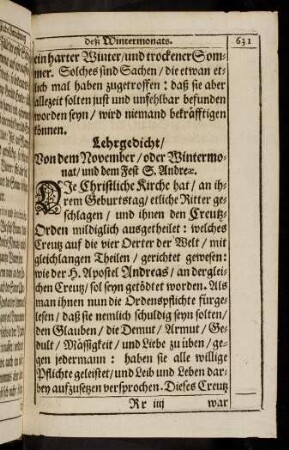 deß Wintermonats. 631
ein harter Winter/ und trockener Som-
mer. Solches sind Sachen / die etwan et-
lich mal haben zugetroffen : daß sie aber
allezeit solten just und unfehlbar befunden
worden seyn / wird niemand bekräfftigen
können.
Lehrgedicht/
Von dem November / oder Wintermo-
nat / und dem Fest S. Andreæ.
DIe Christliche Kirche hat / an ih-
rem Geburtstag / etliche Ritter ge-
schlagen / und ihnen den Creutz-
Orden mildiglich ausgetheilet : welches
Creutz auf die vier Oerter der Welt / mit
gleichlangen Theilen / gerichtet gewesen :
wie der H. Apostel Andreas / an dergleí-
chen Creutz / sol seyn getödtet worden. Als
man ihnen nun die Ordenspflichte fürge-
lesen / daß sie nemlich schuldig seyn solten /
den Glauben / die Demut / Armut / Ge-
dult / Mässigkeit / und Liebe zu üben / ge-
gen jedermann : haben sie alle willige
Pflichte geleistet / und Leib und Leben dar-
bey aufzusetzen versprochen. Dieses Creutz
Rr iiij war